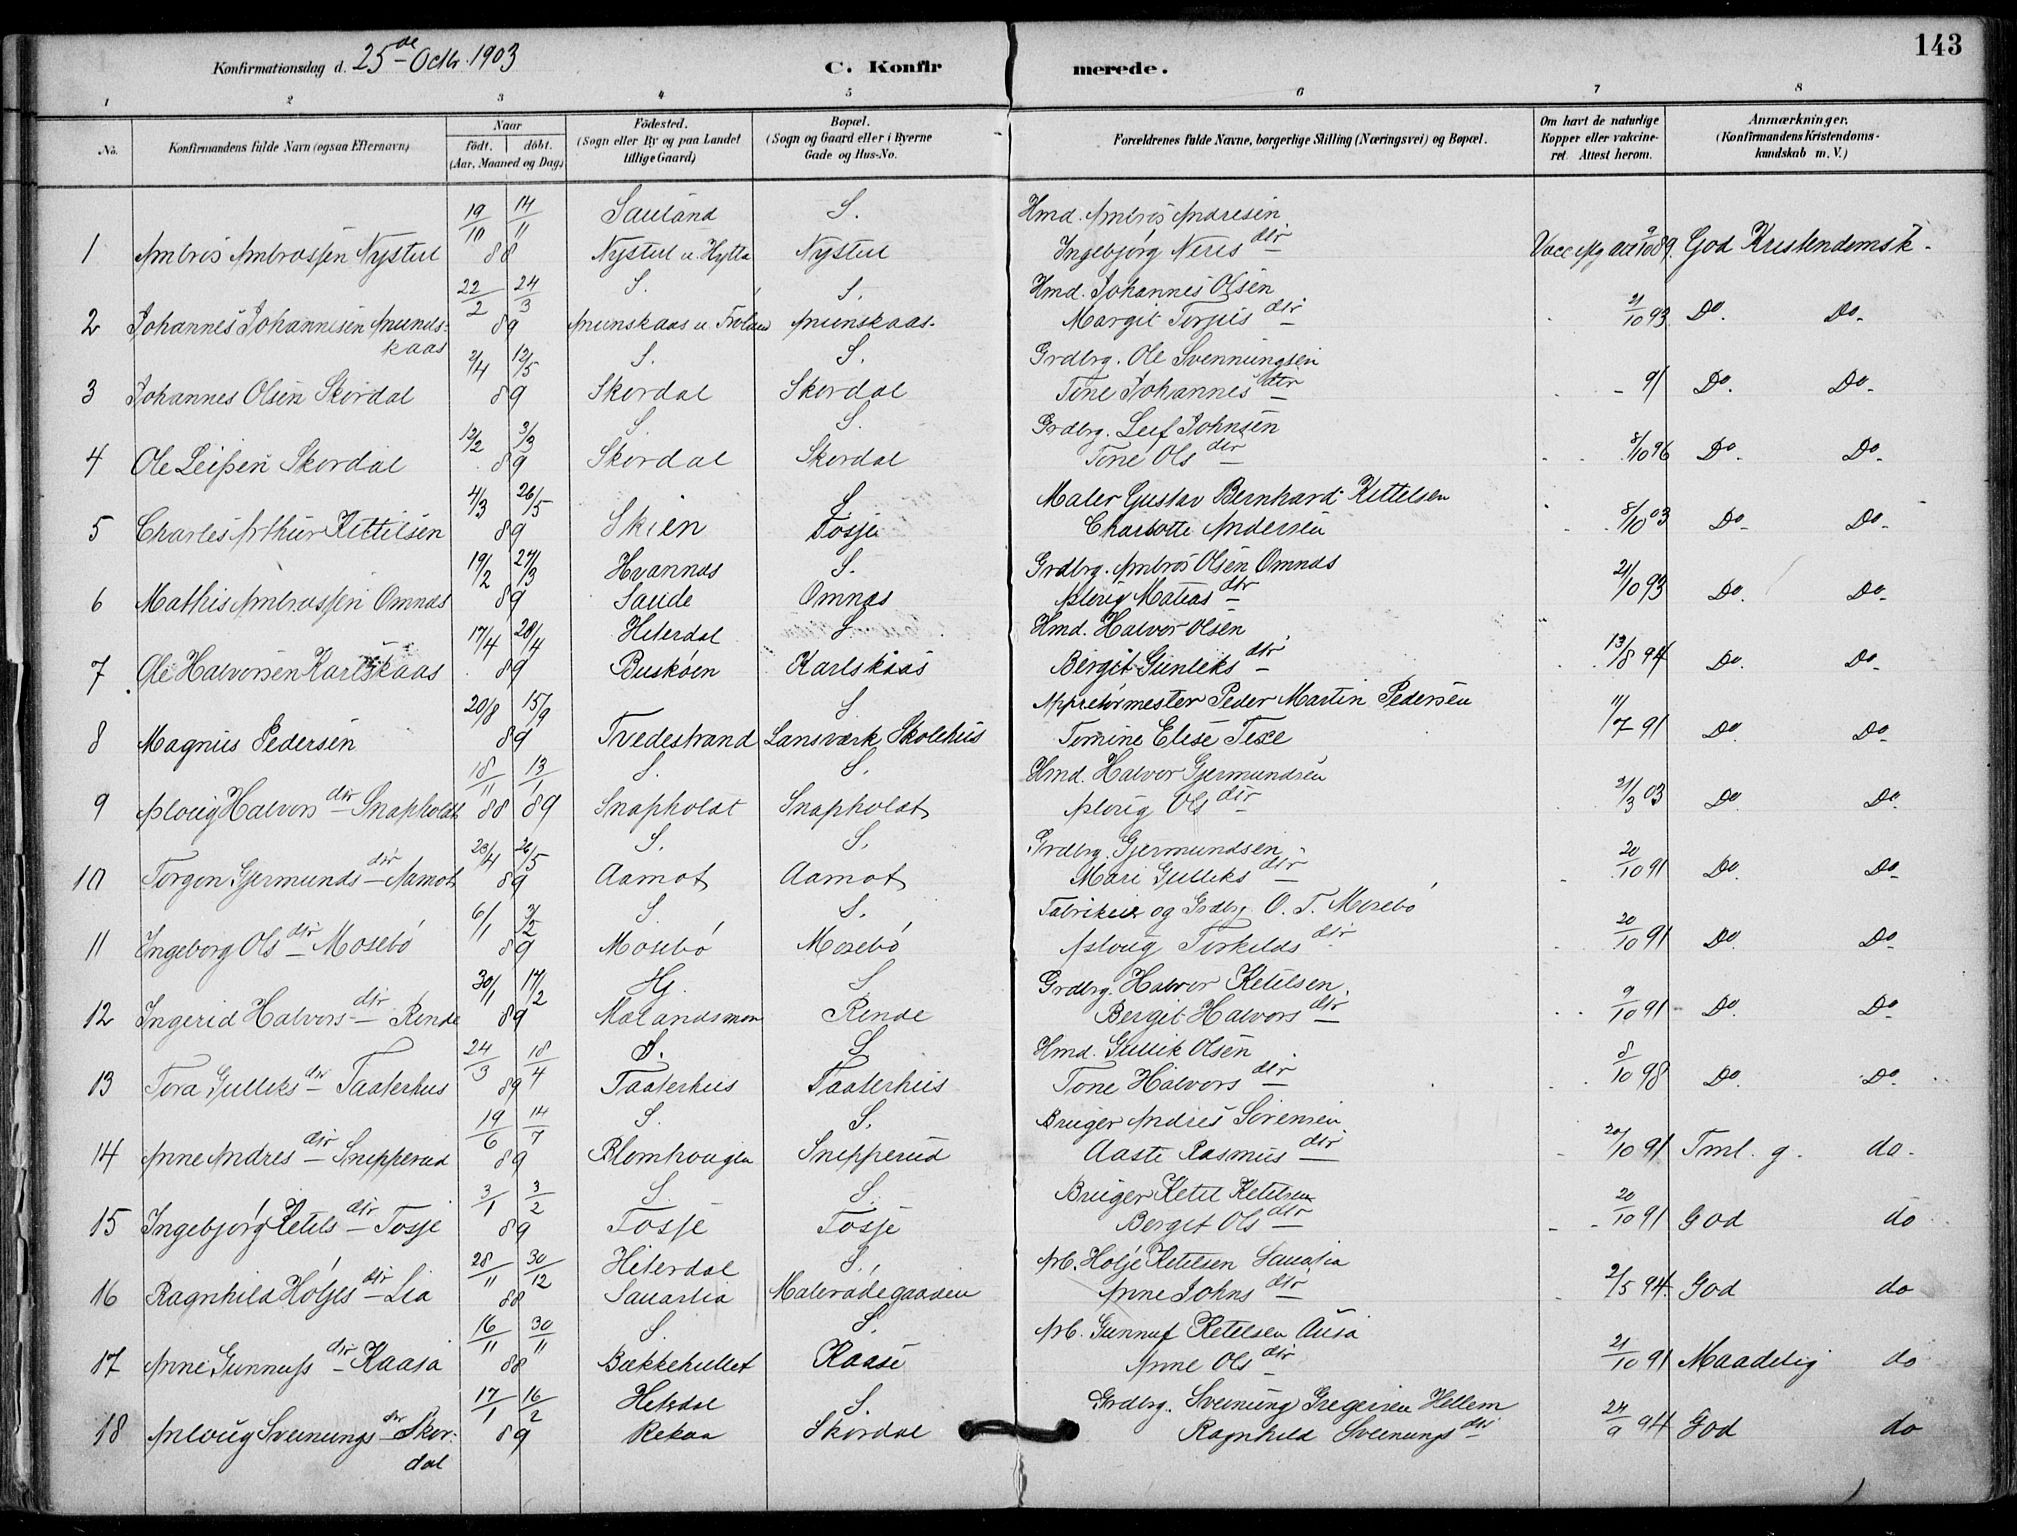 143
Konfirmationsdag d. 25de Octbr. 1903 C. Konfirmerede.
1 2 3 4 5 6 7 8
No. Konfirmandens fulde Navn (ogsaa Efternavn) Naar født. døbt. (Aar, Maaned og Dag) Fødested. (Sogn eller By og paa Landet tillige Gaard) Bopæl. (Sogn og Gaard eller i Byerne Gade og Hus-No. Forældrenes fulde Navne, borgerlige Stilling (Næringsvei) og Bopæl. Om havt de naturlige Kopper eller vakcineret. Attest herom. Anmærkninger. (Konfirmandens Kristendomskundskab m. V.)
19/10 14/11 Sauland S. Hmd. Ambros Andresen
1 Ambros Ambrossen Nystul 88 Nystul u. Hytta Nystul Ingebjørg Neris dtr God Kristendomsk.
22/2 24/3 S. S. Hmd. Johannes Olsen
2 Johannes Johannesen Amunds- 89 Amunskaas Margit Torjus dtr 2/10 93 Do. Do.
kaas
2/4 12/5 S. S. Grdbrg. Ole Svenningsen
3 Johannes Olsen Skordal 89 Skordal Skordal Tone Johannes dtr - 91 Do. Do.
12/2 3/3 S. S. Grdbrg. Leif Johnsen
4 Ole Leifsen Skordal 89 Skordal Skordal Tone Ols dtr 8/10 96 Do. Do.
4/3 26/5 S Maler Gustav Bernhard Kittelsen
5 Charles Arthur Kittilsen 89 Skien Tosje Charlotte Andersen 8/10 03 Do. Do.
19/2 27/3 Hvannas S. Grdbrg. Ambros Olsen Omnas
6 Mathis Ambrossen Omnas 89 Saude Omnas Aslaug Matias dtr 21/10 93 Do. Do.
17/4 28/4 Hiterdal S Hmd. Halvor Olsen
7 Ole Halvorsen Karlskaas 89 Buskøen Karlskaas Bergit Gunleks dtr 13/8 94 Do. Do.
20/8 15/9 S Appretørmester Peder Martin Pedersen
8 Magnus Pedersen 89 Tvedestrand Lansværk Skolehus Tomine Elise 11/7 91 Do. Do.
18/11 13/1 S. S. Hmd. Halvor Gjermundsen
9 Aslaug Halvors dtr Snapholdt 88 89 Snapholdt Snapholdt Aslaug Ols dtr 21/3 03 Do. Do.
23/4 26/5 S. S. Grdbrg. Gjermundsen
10 Torgon Gjermunds dtr Aamot 89 Aamot Aamot Mari Gulleks dtr 20/10 91 Do. Do.
6/1 3/2 S. S. Fabrikeier og Grdbrg O. T. Mosebø
11 Ingeborg Ols dtr Mosebø 89 Mosebø Mosebø Aslaug Torkilds dtr 20/10 91 Do. Do.
30/1 17/2 Hj. S Grdbrg. Halvor Ketilsen.
12 Ingerid Halvors dtr Rende 89 Malandsmoen Rende Bergit Halvors dtr 9/10 91 Do. Do.
24/3 18/4 S. S Hmd. Gullik Olsen
13 Tora Gulleks dtr Taaterhus 89 Taaterhus Taaterhus Tone Halvors dtr 8/10 98 Do. Do.
19/6 14/7 S. S. Bruger Andres Sørensen
14 Anne Andres dtr Snipperud 89 Blomhougen Snipperud Aaste Rasmus dtr 20/10 91 Tml. g. do.
3/1 3/2 S. S. Bruger Ketil Ketilsen
15 Ingebjørg Ketils dtr Tosje 89 Tosje Tosje Berget Ols dtr 20/10 91 God do
28/11 30/12 Hiterdal S. Arb. Holje Ketelsen Sauarlia
16 Ragnhild Høljes dtr Lia 88 Sauarlia Anne Johns dtr 2/5 94 God do
16/11 30/11 S. S. Arb. Gunnuf Ketelsen Ausa
17 Anne Gunnufs dtr Kaasa 88 Bækkehullet Kaase Anne Ols dtr 21/10 91 Maadelig do
17/1 16/2 Hitrdal S. Grdbrg. Sveinung Gregersen Hellem
18 Aslaug Sveinungs dtr Skor- 89 Rekaa Skordal Ragnhild Sveinungs dtr 24/9 94 God do
dal